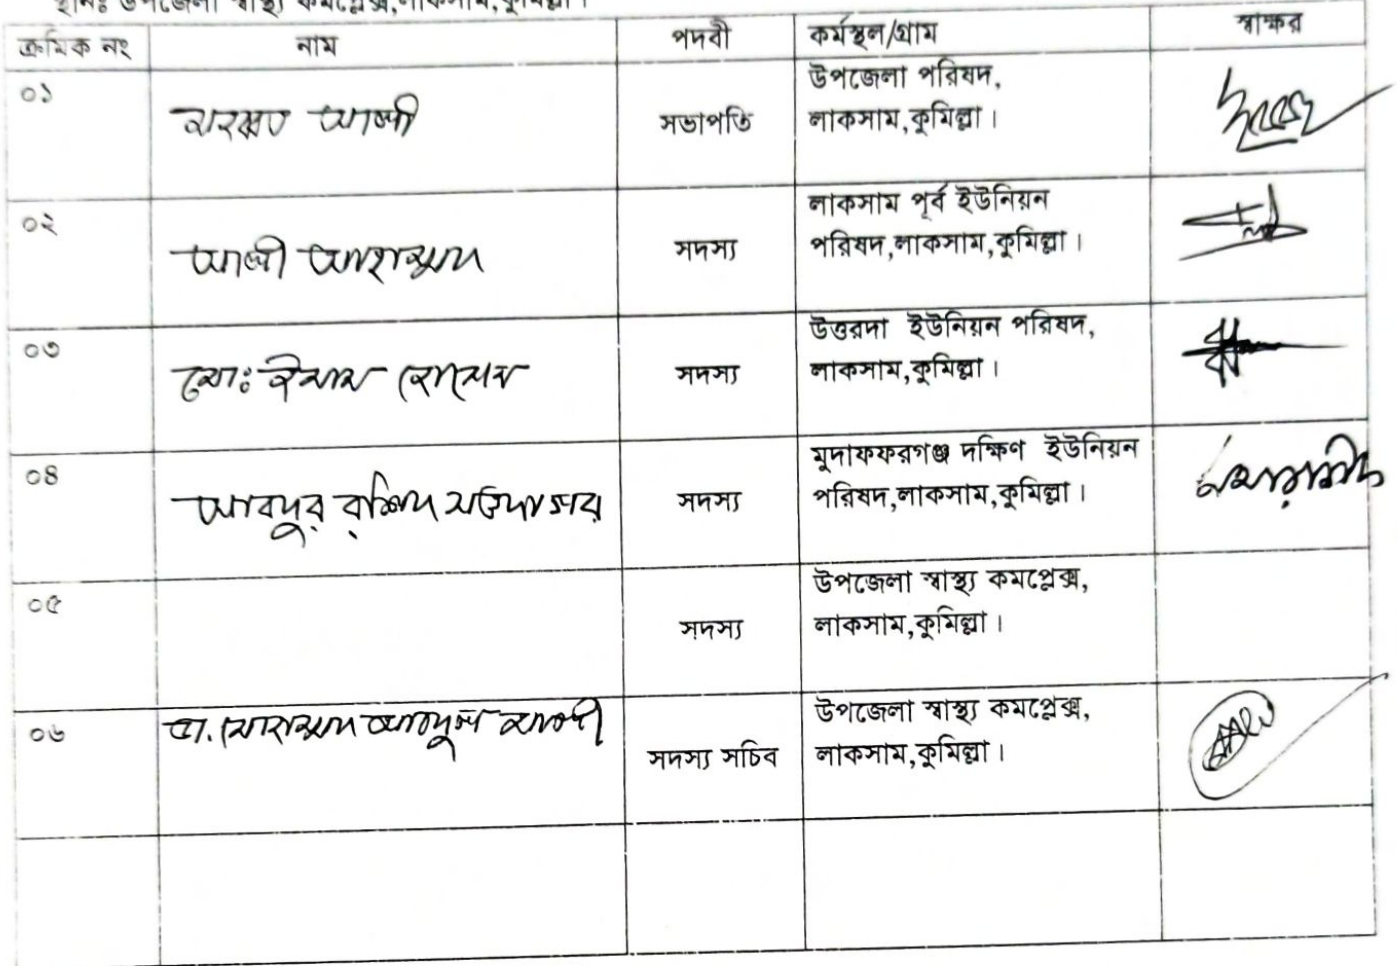 স্থানঃ উপজেলা স্বাস্থ্য কমপ্লেক্স,লাকসাম,কুমিল্লা।
ক্রমিক নং নাম পদবী কর্মস্থল/গ্রাম স্বাক্ষর
০১ আলী সভাপতি উপজেলা পরিষদ,
লাকসাম,কুমিল্লা।
০২ আলী আহাম্মদ সদস্য লাকসাম পূর্ব ইউনিয়ন
পরিষদ,লাকসাম,কুমিল্লা।
০৩ মোঃ ইমাম হোসেন সদস্য উত্তরদা ইউনিয়ন পরিষদ,
লাকসাম,কুমিল্লা।
০৪ আবদুর রশিদ সওদাগর সদস্য মুদাফফরগঞ্জ দক্ষিণ ইউনিয়ন
পরিষদ,লাকসাম,কুমিল্লা।
০৫ সদস্য উপজেলা স্বাস্থ্য কমপ্লেক্স,
লাকসাম,কুমিল্লা।
০৬ ডা. মোহাম্মদ আবদুল আলী সদস্য সচিব উপজেলা স্বাস্থ্য কমপ্লেক্স,
লাকসাম,কুমিল্লা।